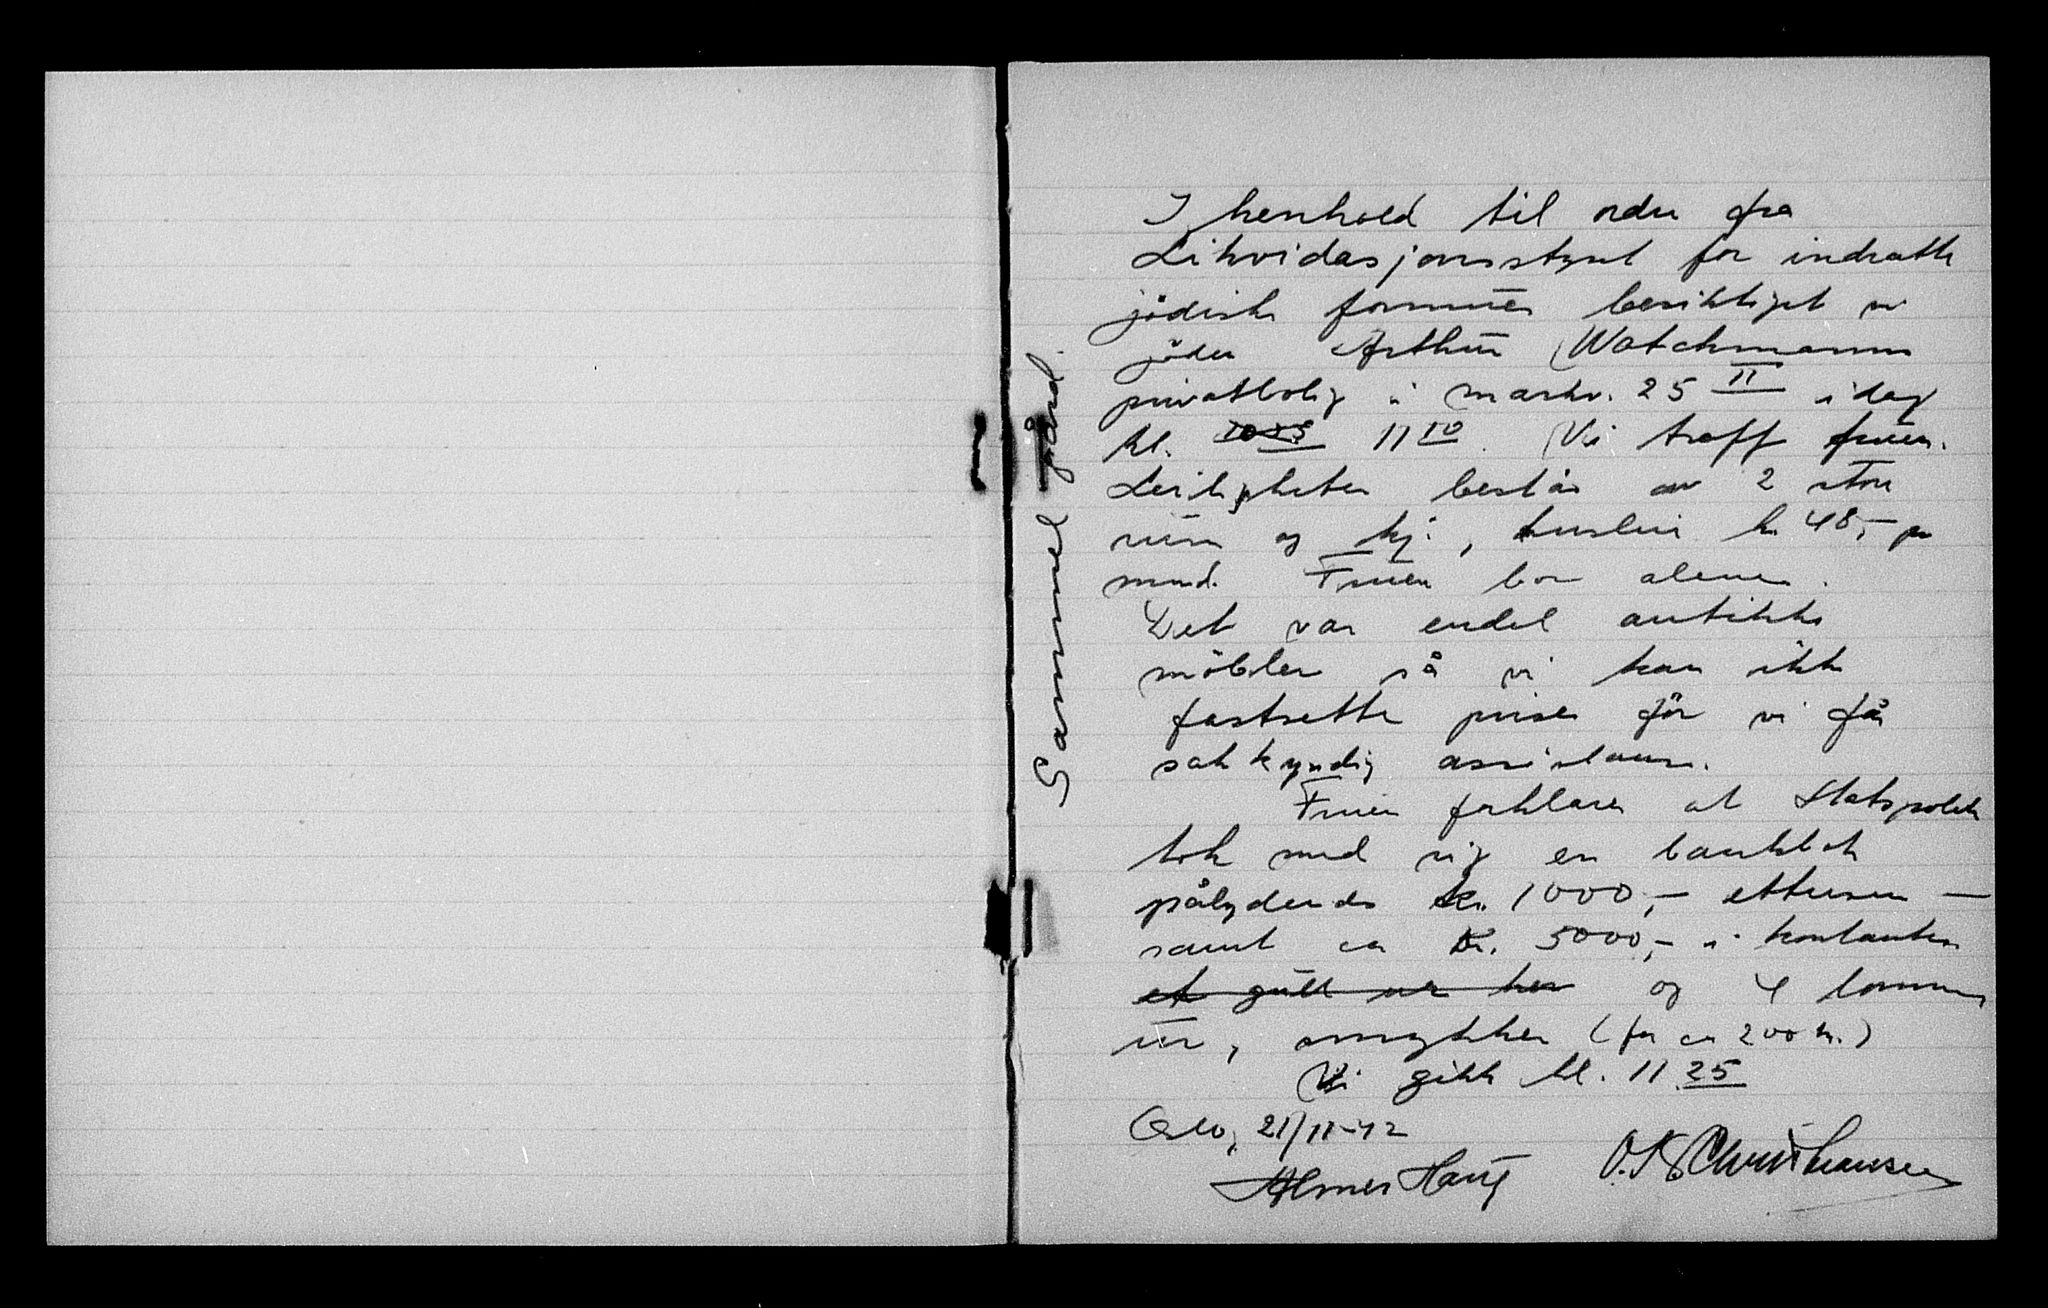 I henhold til ordre fra
Likvidasjonsstyret for inndratte
jødiske formuer besiktiget vi
jøden Arthur Watchmanns
privatbolig i Markv. 25 II idag
kl. 10 55 11 10. Vi traff fruen.
Leiligheten består av 2 store
rum og kj., husleie kr. 48,- pr
mnd. Fruen bor alene.
Det var endel antikke
møbler så vi kan ikke
fastsette prisen før vi får
sakkyndig assistanse.
Fruen forklarer at Statspolitiet
tok med sig en bankbok
pålydende kr. 1000,- ettusen —
samt ca kr. 5000,- i kontanter
et gull og 4 lomme
ur, smykker (for ca 200 kr.)
Vi gikk kl. 11 25
Oslo, 21/11-42
Haug O. Christiansen
Gammel gård.